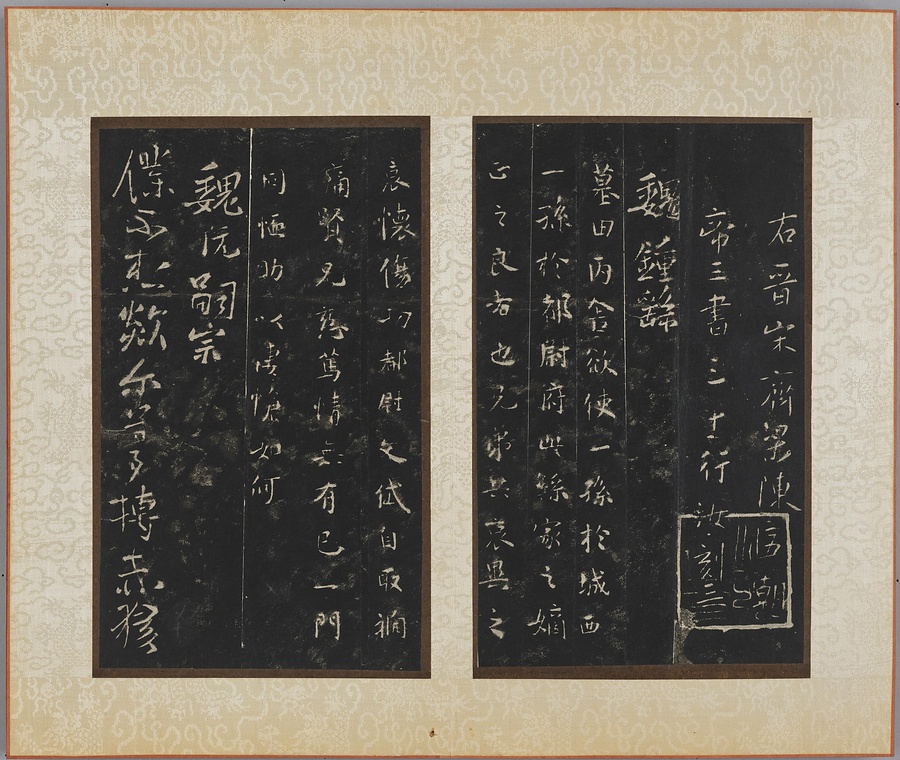 右晉宋齊梁陳
帝王書三十一行
汝刻三
魏鍾繇
墓田丙舍欲使一孫於城西
一孫於都尉府此繇家之嫡
正之良者也兄弟共哀異之
哀懷傷切都尉文岱自取禍
痛賢兄慈篤情無有已一門
同恤助以悽愴如何
魏阮嗣宗
僕不想歘尔夢搏赤猿